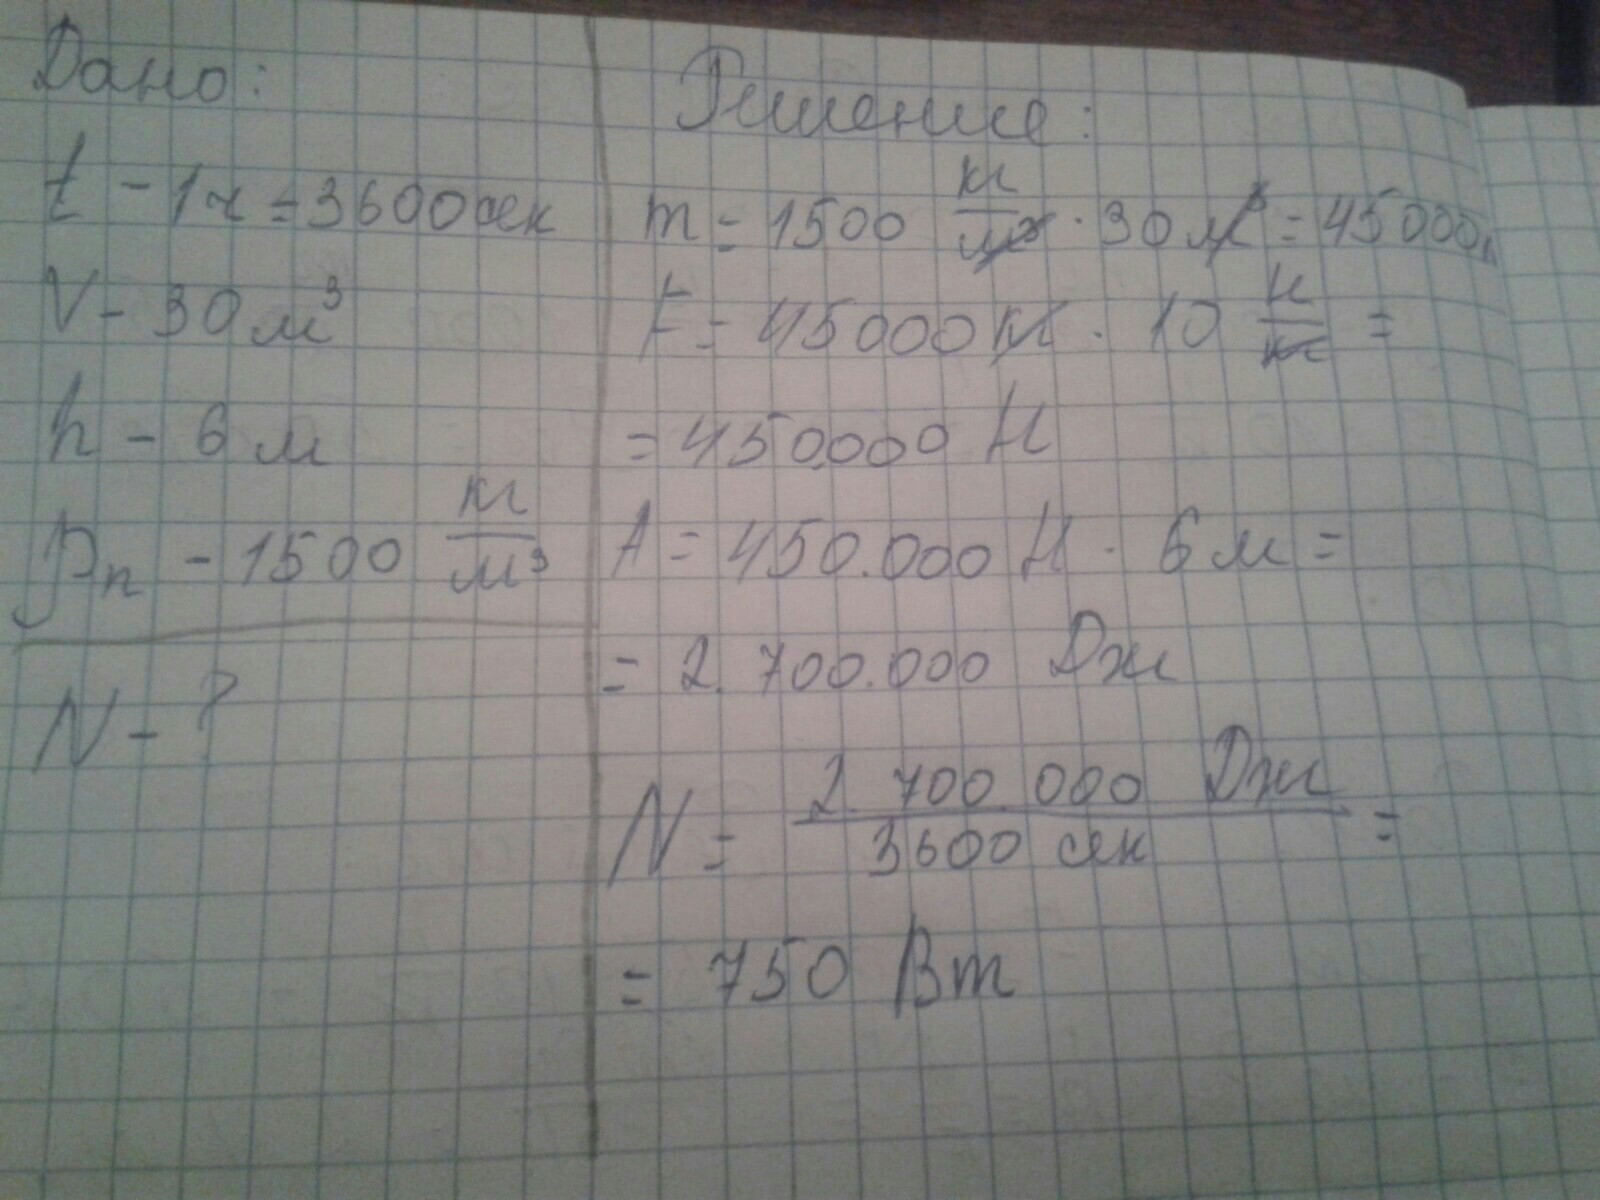 Дано:
t - 1ч = 3600сек
V - 30 м³
h - 6 м
ρп - 1500 кг/м³
N - ?
Решение:
m = 1500 кг/м³ · 30 м³ = 45000
F = 45000кг · 10 Н/кг =
= 450.000 Н
A = 450.000 Н · 6 м =
= 2.700.000 Дж
N = 2.700.000 Дж / 3600 сек =
= 750 Вт